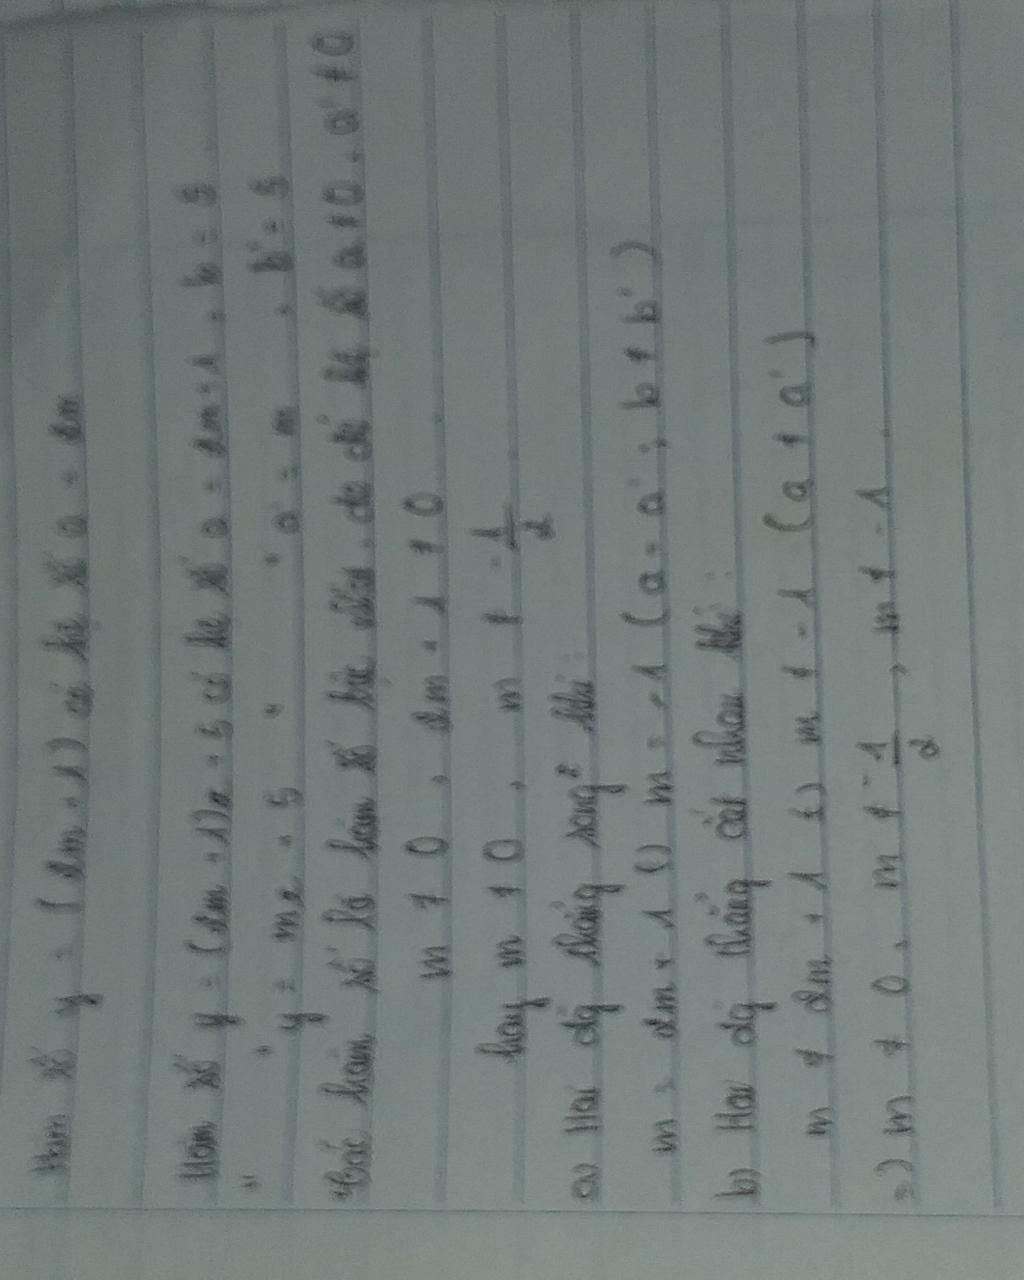 Hàm số y = (2m + 1) có hệ số a = 2m
Hàm số y = (2m + 1)x + 5 có hệ số a = 2m + 1, b = 5
" " y = mx + 5 " " a' = m, b' = 5
Các hàm số là hàm số bậc nhất, do đó hệ số a ≠ 0, a' ≠ 0
m ≠ 0, 2m + 1 ≠ 0.
hay m ≠ 0, m ≠ -1/2.
a) Hai đg thẳng song² khi:
m = 2m + 1 (=) m = -1 (a = a'; b ≠ b')
b) Hai đg thẳng cắt nhau khi:
m ≠ 2m + 1 (=) m ≠ -1 (a ≠ a')
=) m ≠ 0, m ≠ -1/2, m ≠ -1.